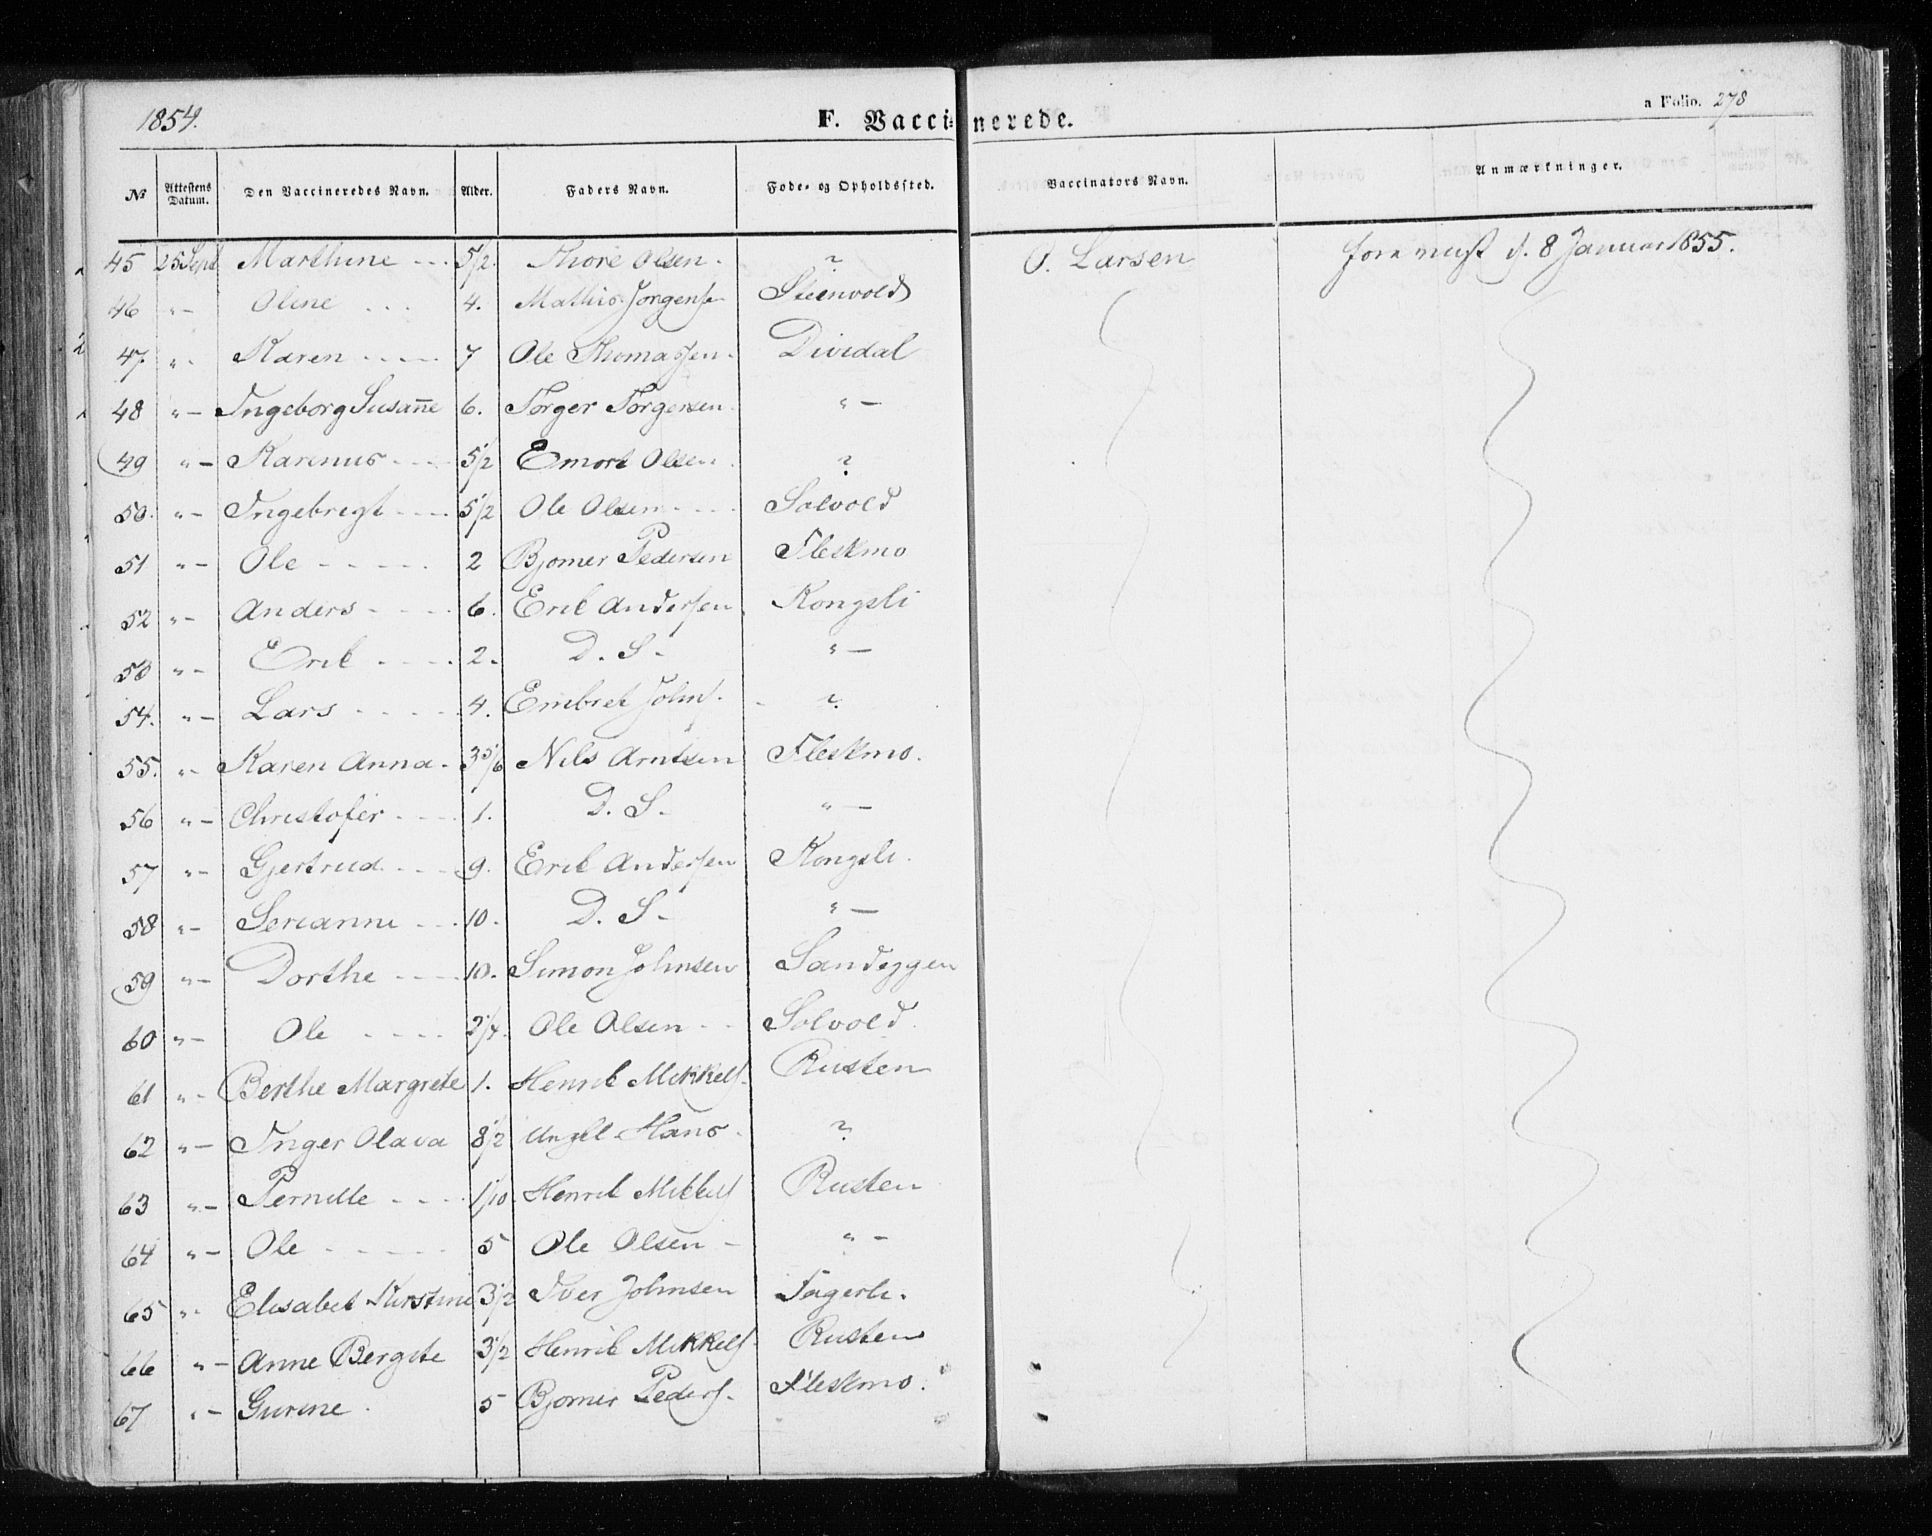 1854.
F. Vaccinerede.
a Folio. 278
No Attestens Datum. Den Vaccineredes Navn. Alder. Faders Navn. Føde- og Opholdssted. Vaccinators Navn. Anmærkninger.
45 25 Sept Marthine 5 1/2 Thore Olsen ? O. Larsen d. 8 Januar 1855.
46 "- Oline 4. Mathis Jørgens Steenvold
47 "- Karen 7 Ole Thomassen Dividal
48 "- Ingeborg Susan̄e 6. Torger Torgersen "-
49 "- Karenus 5 1/2 Emort Olsen ?
50. "- Ingebregt 5 1/2 Ole Olsen Solvold
51 "- Ole 2 Bjørner Pedersen Fleskmo
52 "- Anders 6. Erik Andersen Kongsli
53 "- Erik 2. D. S. "-
54. "- Lars 4. Embret Johns. ?
55. "- Karen Anna 3 5/6 Nils Arntsen Fleskmo.
56 "- Christofer 1. D. S. "-
57 "- Gjertrud 9. Erik Andersen Kongsli.
58 "- Serianne 10. D. S. "-
59 "- Dorthe 10. Simon Johnsen Sandeggen
60 "- Ole 2 1/4. Ole Olsen Solvold
61 "- Berthe Margrete 1. Henrik Mikkels. Rusten
62 "- Inger Olava 8 1/2 Hans ?
63 "- Pernille 1/10 Henrik Mikkels Rusten
64 "- Ole 5 Ole Olsen "-
65 "- Elisabet Kirstine 3 1/2 Iver Johnsen Fagerli.
66 "- Anne Bergite 3 1/2 Henrik Mikkels. Rusten
67 "- Gurine. 5 Bjørner Peders. Fleskmo.